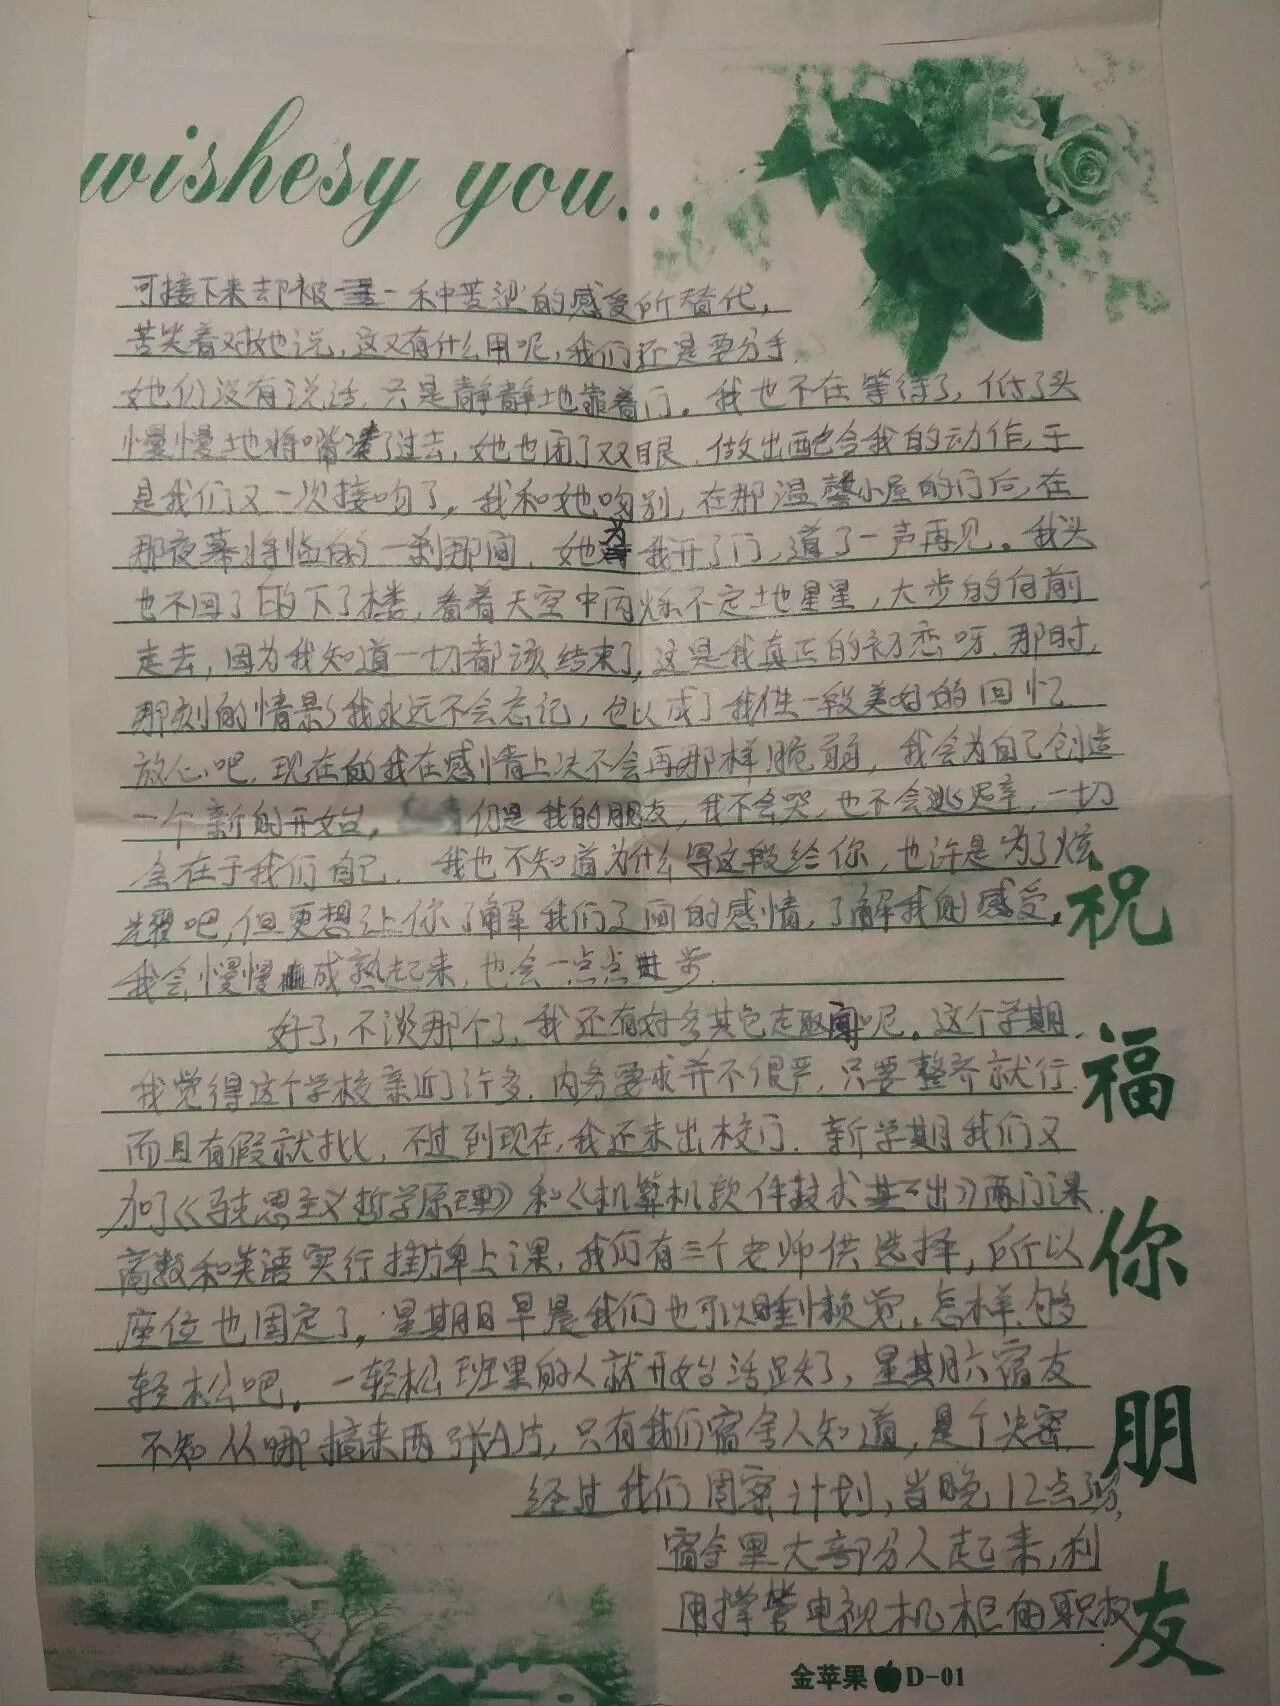 wishesy you...
可接下来却被一种苦涩的感受所替代，
苦笑着对她说，这又有什么用呢，我们还是要分手
她们没有说话，只是静静地靠着门。我也不在等待了，低了头
慢慢地将嘴凑了过去，她也闭了双眼，做出配合我的动作，于
是我们又一次接吻了。我和她吻别，在那温馨小屋的门后，在
那夜幕将临的一刹那间，她为我开了门，道了一声再见。我头
也不回了的下了楼，看着天空中闪烁不定地星星，大步的向前
走去，因为我知道一切都该结束了，这是我真正的初恋呀，那时，
那刻的情景我永远不会忘记，也以成了我一段美好的回忆
放心吧，现在的我在感情上决不会再那样脆弱，我会为自己创造
一个新的开始。仍是我的朋友，我不会哭，也不会逃避，一切
全在于我们自己。我也不知道为什么写这段给你，也许是为了炫
耀吧，但更想让你了解我们之间的感情，了解我的感受，
我会慢慢成熟起来，也会一点点进步
好了，不谈那个了，我还有好多其它趣闻呢。这个学期，
我觉得这个学校亲近了许多，内务要求并不很严，只要整齐就行
而且有假就批，不过到现在，我还未出校门。新学期我们又
加了《马克思主义哲学原理》和《计算机软件技术》两门课
高数和英语实行挂牌上课，我们有三个老师供选择，所以
座位也固定了。星期日早晨我们也可以睡懒觉。怎样，够
轻松吧。一轻松班里的人就开始活跃了，星期六宿友
不知从哪搞来两张A片，只有我们宿舍人知道，是个决密
经过我们周密计划，当晚12点多，
宿舍里大部分人起来，利
用掌管电视机柜的职权
祝福你朋友
金苹果 D-01